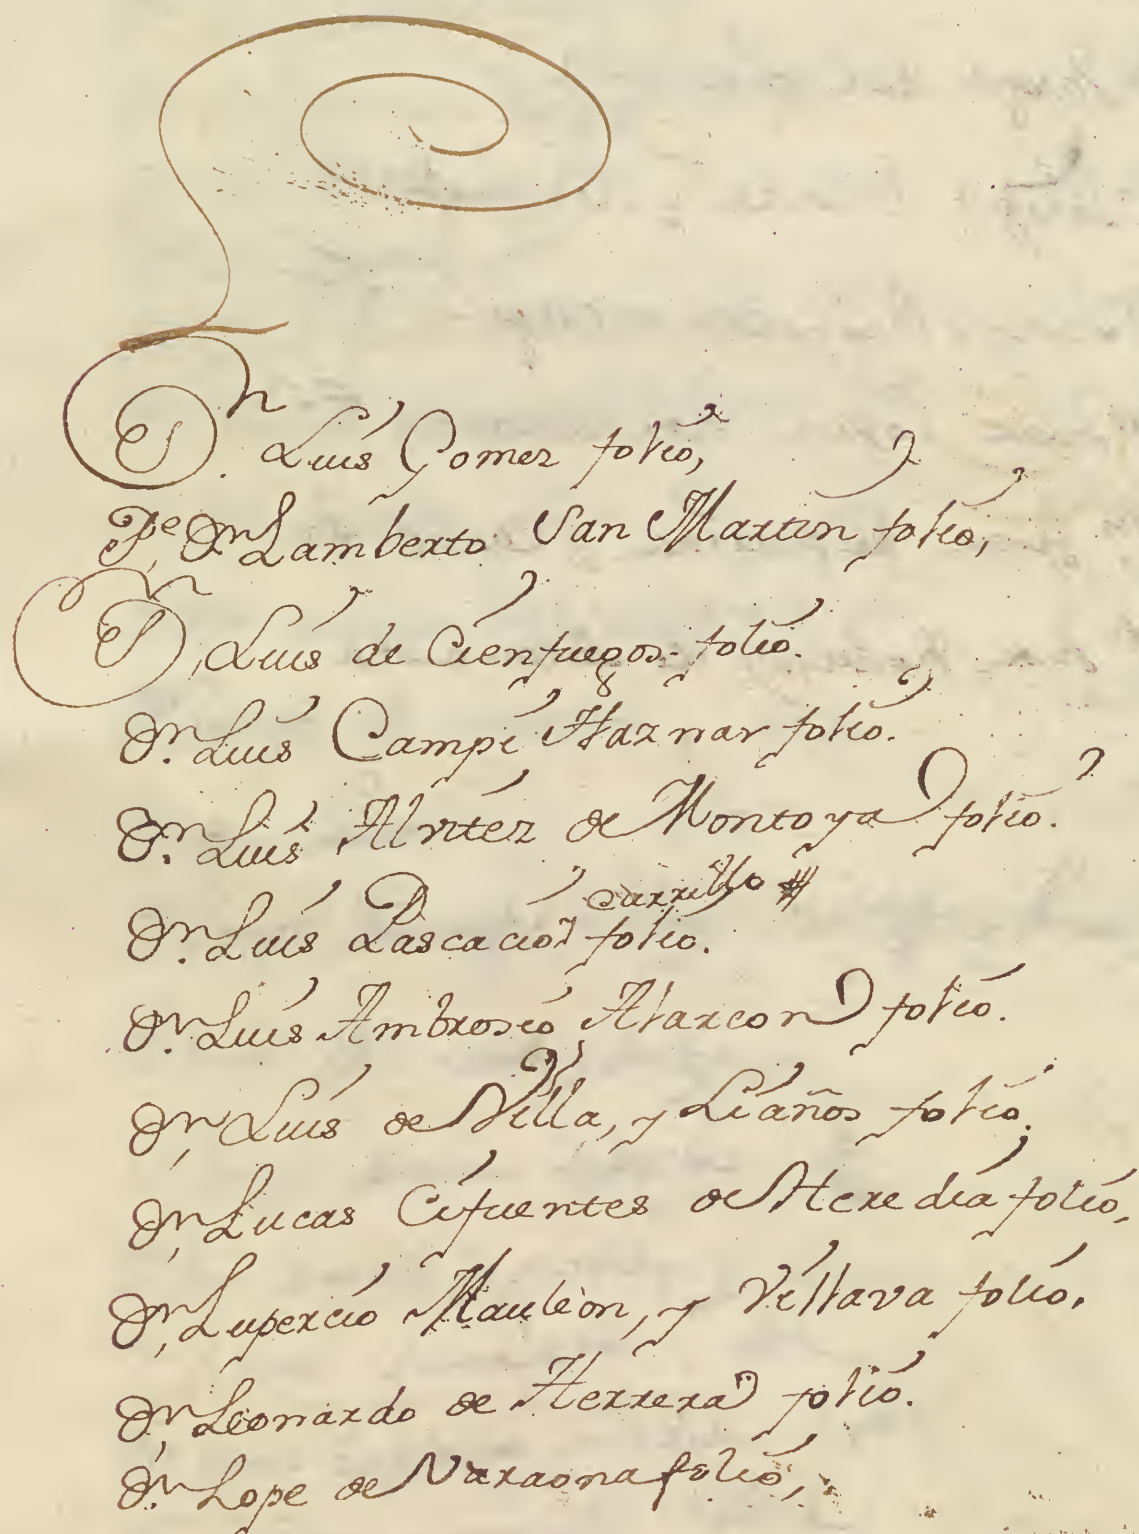 L
Dn. Luis Gomez folio,
Pe, Dn Lamberto San Martin folio,
Dn, Luis de Cienfuegos folio.
Dn. Luis Campi Haznar folio.
Dn. Luis de Montoya folio.
Carrillo
Dn. Luis Pascacio folio.
Dn. Luis Ambrosio Alarcon folio.
Dn, Luis de Villa, y Liaños folio.
Dn, Lucas Cifuentes de Heredia folio,
Dn, Lupercio Mauleon, y Villava folio.
Dn, Leonardo de Herrera folio.
Dn. Lope de Varaona folio,